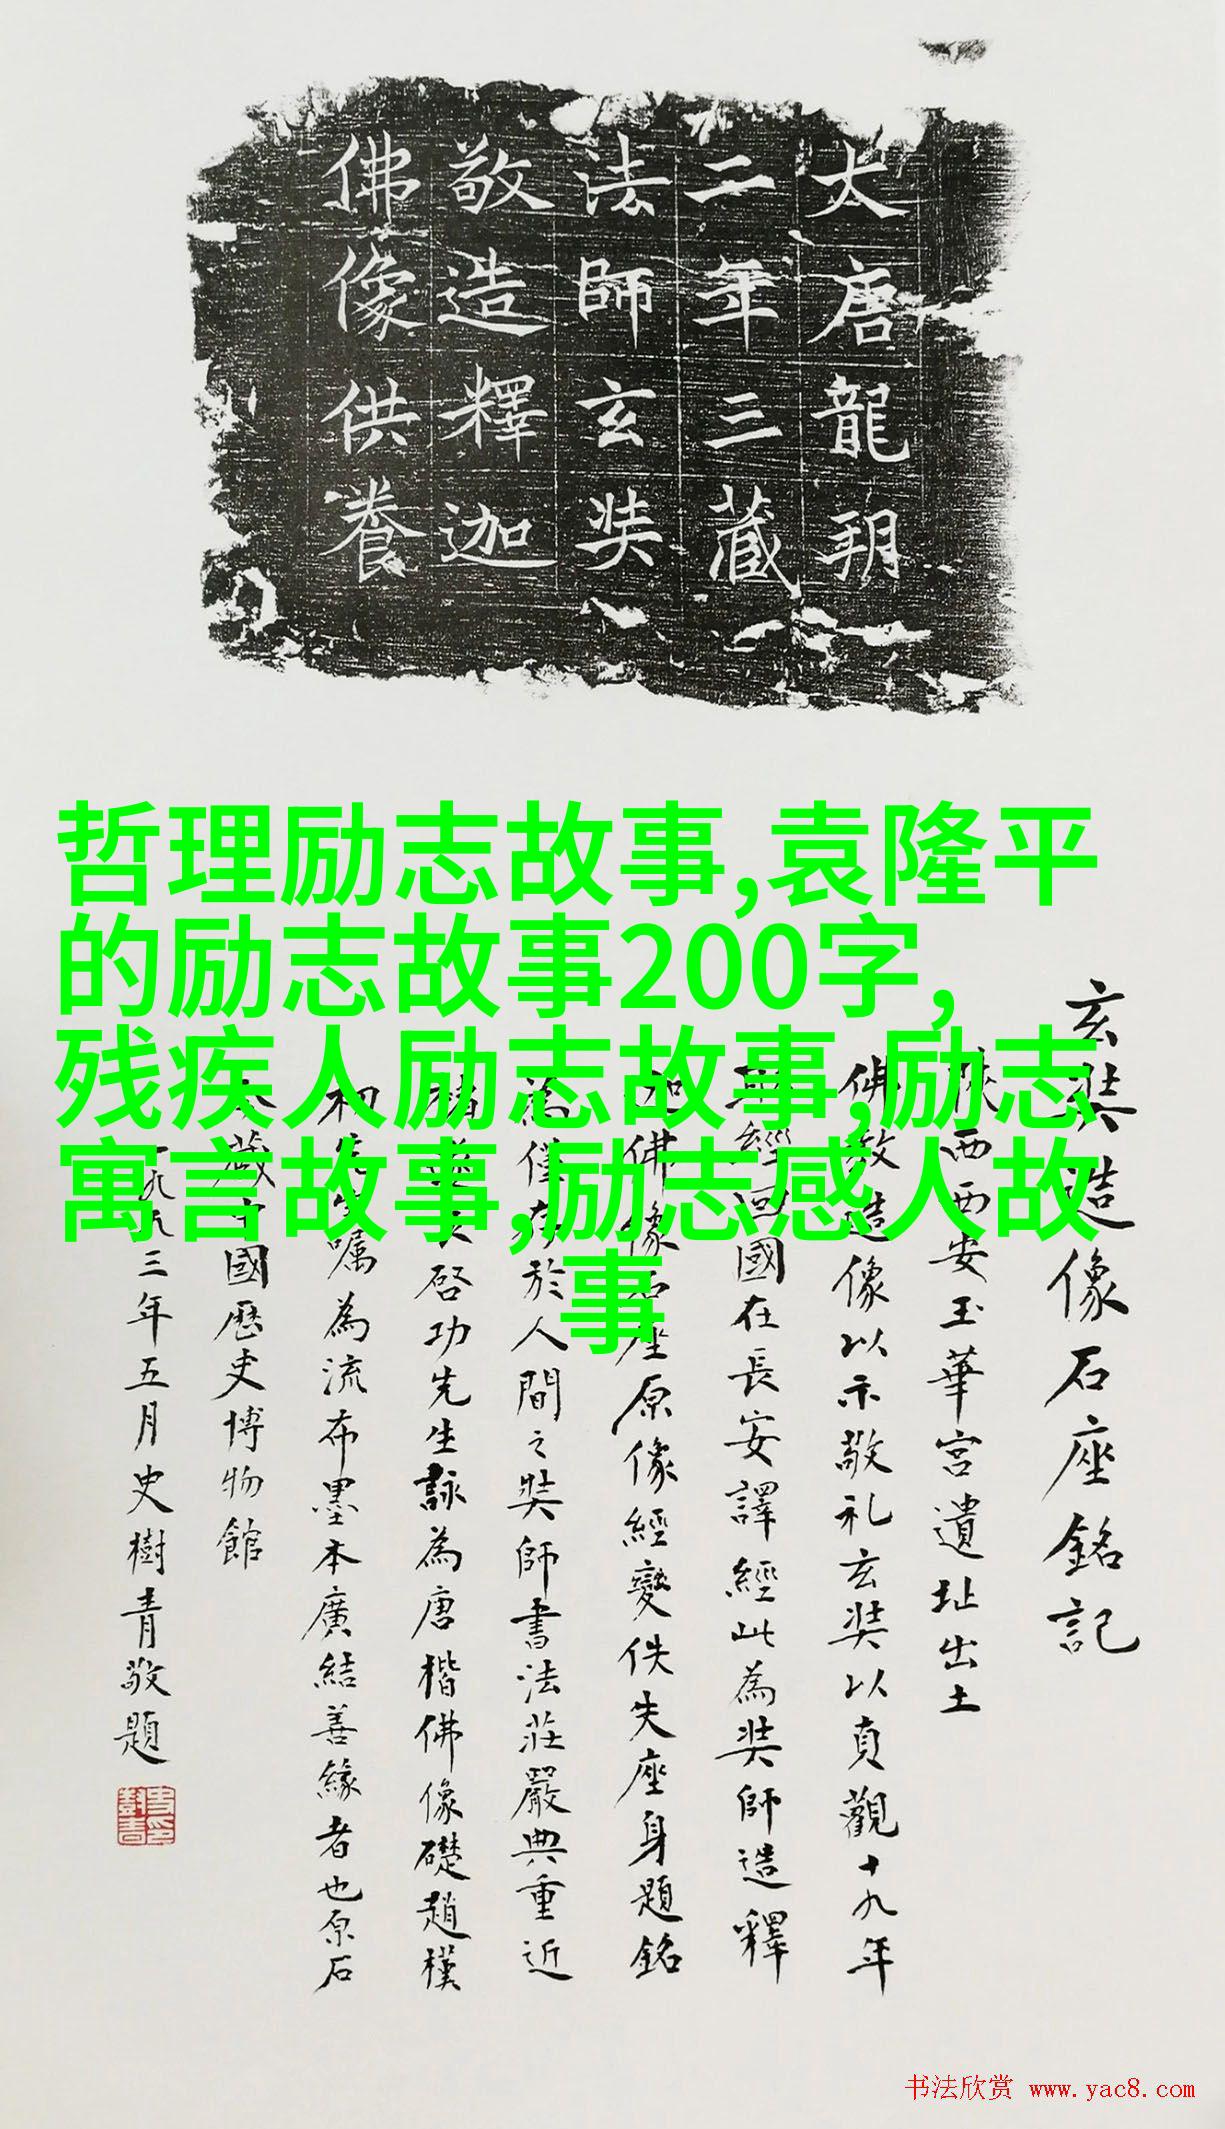 大唐龍朔
二年三藏
法師玄奘
敬造釋迦
佛像供養
哲理励志故事,袁隆平
的励志故事200字,
残疾人励志故事,励志
寓言故事,励志感人故
事
玄奘造像石座銘記
陝西西安玉華宮遺址出土
佛教造像以示敬礼玄奘以貞觀十九年
經回國在長安譯經此為奘師造釋
迦佛像石座原像經變佚失座身題銘
為僅存於人間之奘師書法莊嚴典重近
启功先生詠為唐楷佛像礎趙樸
初先生囑為流布墨本廣結善緣者也原石
今藏中國歷史博物館
一九九三年五月史樹青敬題
书法欣赏 www.yac8.com